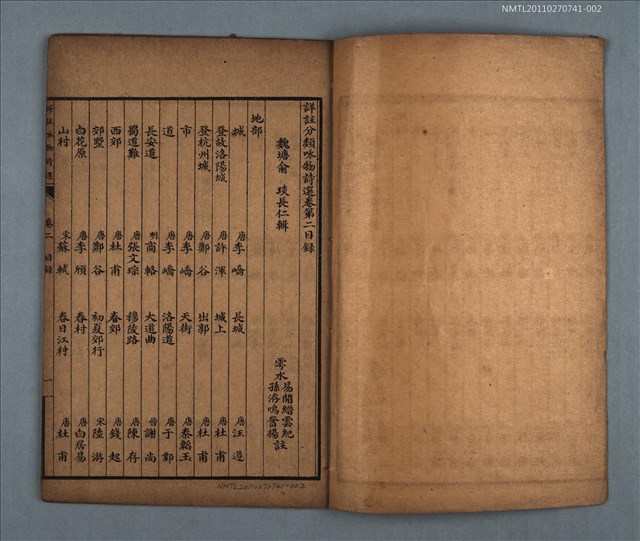 NMTL20110270741-002
詳註分類咏物詩選卷第二目錄
魏塘俞 琰長仁輯
雩水易開縉雲紀註
孫洊鳴奮揚
地部
城 唐李嶠 長城 唐汪遵
登故洛陽城 唐許渾 城上 唐杜甫
登杭州城 唐鄭谷 出郭 唐杜甫
市 唐李嶠 天街 唐秦韜玉
道 唐李嶠 洛陽道 唐于鄴
長安道 明商輅 大道曲 晉謝尚
蜀道難 唐張文琮 穆陵路 唐陳存
西郊 唐杜甫 春郊 唐錢起
郊墅 唐鄭谷 初夏郊行 宋陸游
白花原 唐李頎 春村 唐白居易
山村 宋蘇軾 春日江村 唐杜甫
詳註咏物詩選 卷二 目錄 一
NMTL20110270741-002